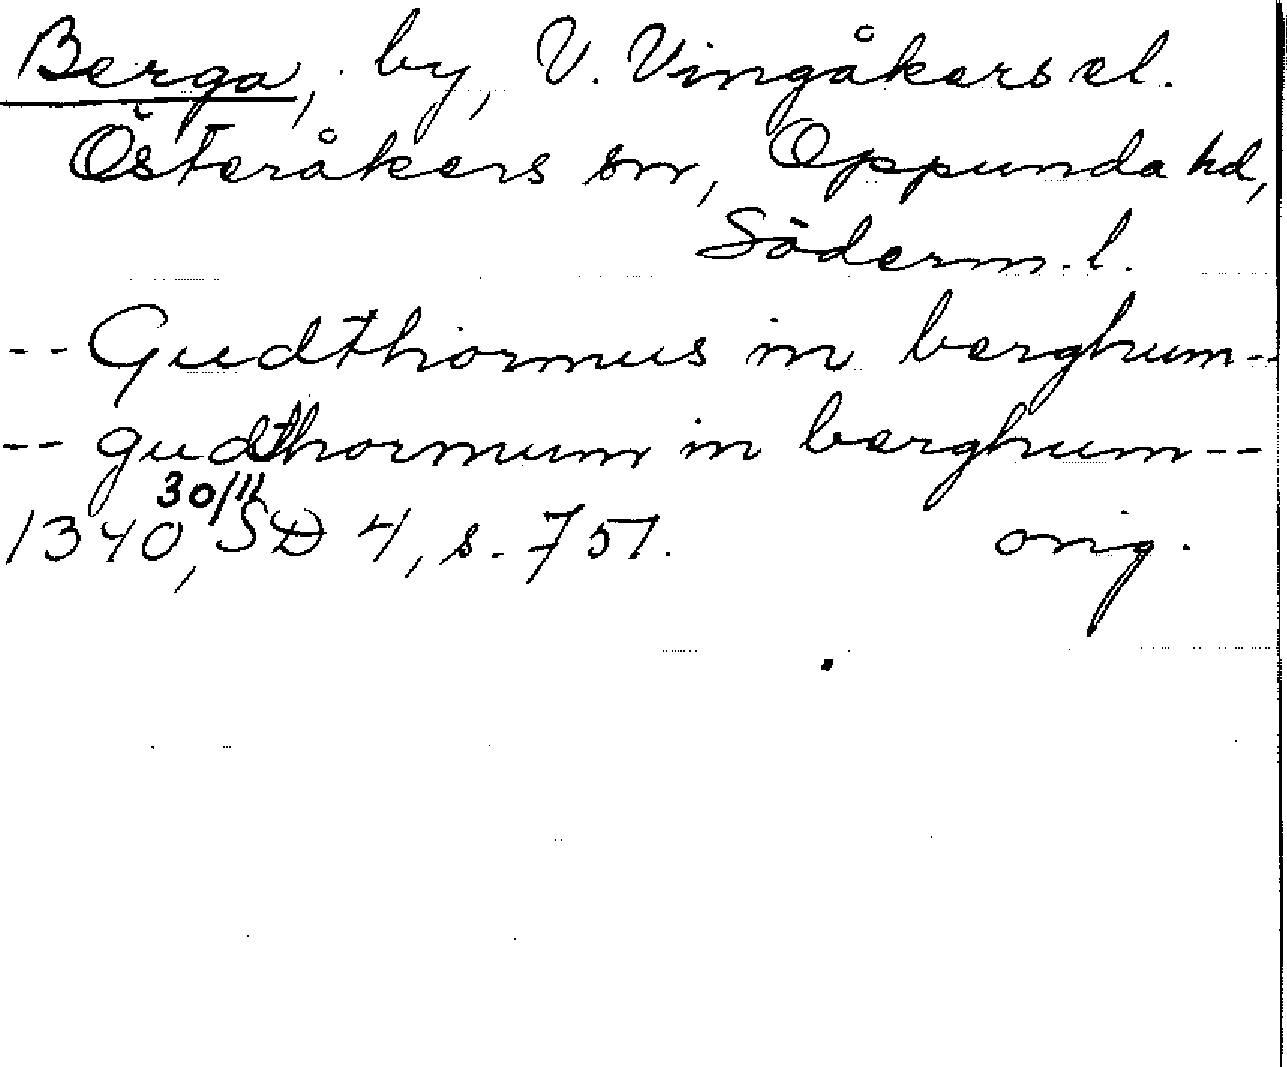 Berga, by, V. Vingåkers el.
Österåkers sn, Oppunda hd,
Söderm. l.
-- Gudthormus in berghum --
-- gudthormum in berghum --
30/11
1340, SD 4, s. 751. orig.